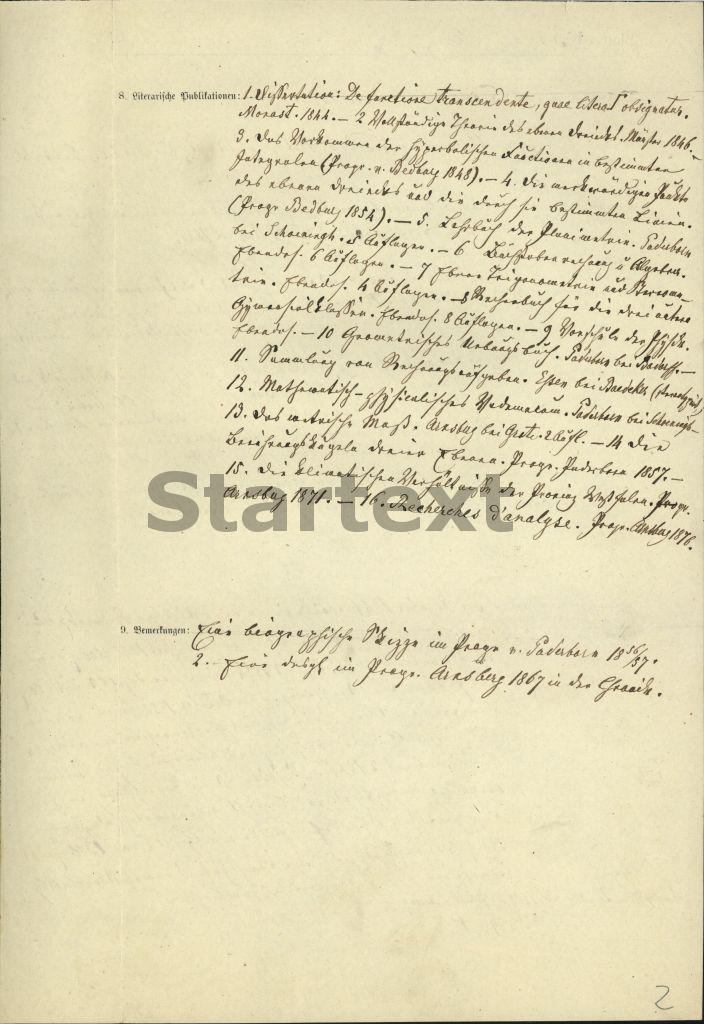 8. Literarische Publikationen: 1. Dissertation: De functione transcendente, quae litera Γ obsignatur.
Monast. 1844. — 2 Vollständige Theorie des ebenen Dreiecks. Münster 1846. —
3. Das Vorkommen der hyperbolischen Functionen in bestimmten
Integralen (Progr. v. Bedburg 1848). — 4. Die merkwürdigen Punkte
des ebenen Dreiecks und die durch sie bestimmten Linien.
(Progr. Bedburg 1854). — 5. Lehrbuch der Planimetrie. Paderborn
bei Schoeningh. 5 Auflagen. — 6 Buchstabenrechnung u Algebra.
Ebendas. 6 Auflagen. — 7 Ebene Trigonometrie und Stereome-
trie. Ebendas. 4 Auflagen. — 8 Rechenbuch für die drei untern
Gymnasialklassen. Ebendas. 8 Auflagen. — 9 Vorschule der Physik.
Ebendas. — 10 Geometrisches Uebungsbuch. Paderborn bei —
11. Sammlung von Rechnungsaufgaben. Essen bei Baedeker
12. Mathematisch-physicalisches Vademecum. Paderborn bei Schoeningh —
13. Das metrische Maß. Arnsberg bei Grote. 2 Aufl. — 14 Die
Berührungskugeln dreier Ebenen. Progr. Paderborn 1857. —
15. Die klimatischen Verhältnisse der Provinz Westfalen. Progr.
Arnsberg 1871. — 16. Recherches d'analyse. Progr. Arnsberg 1876.
Startext
9. Bemerkungen: Eine biographische Skizze im Progr v. Paderborn 1856/57.
2. Eine desgl. im Progr. Arnsberg 1867 in der Chronik.
2